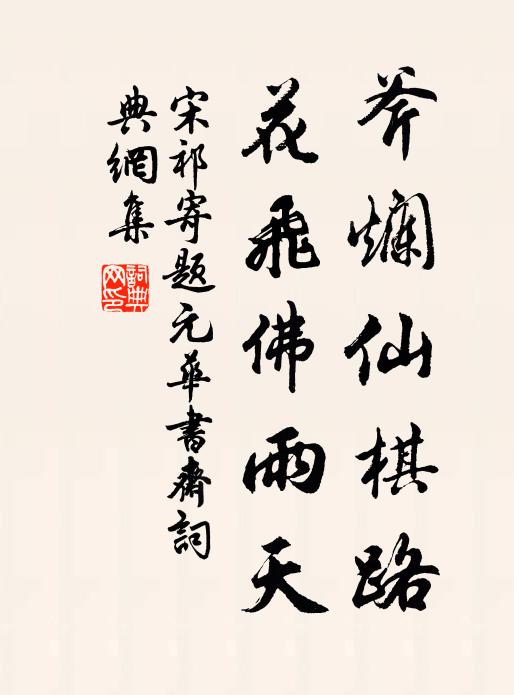 斧爛仙棋路
花飛佛雨天
宋祁寄題元華書齋詞
典網集
詞典網印